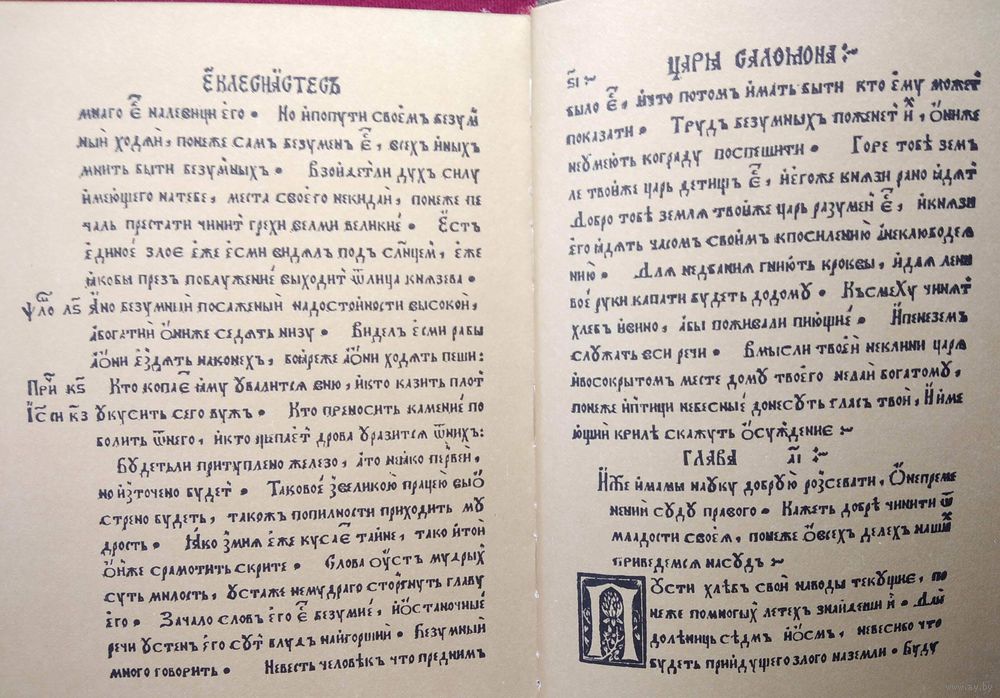 ЕКЛЕСИАСТЕСЪ
много е҃ налевици его • Но ипопути своемъ безум
ный ходяй, понеже самъ безумен е҃, всех иных
мнить быти безумныхъ • Взойдетли духъ силу
имеющего натебе, места своего некидаи, понеже пе
чаль престати чинит грехи велми великие • Есть
единое злоє еже есми видялъ подъ сл҃нцем, еже
якобы през поблужение выходит ѿлица князева •
Ано безумный посаженый надостойности высокой,
абогатии ониже седять низу • Виделъ есми рабы
аони ездять наконехъ, бояре же аони ходять пеши:
Прит҃ кѕ҃ Кто копає яму увалится вню, икто казить плот
І҃сн к҃з укусить сего вужъ • Кто преносить камение по
болить ѿнего, икто щепает дрова уразится ѿнихъ:
Будетьли притуплено железо, ато неяко первей,
но източено будет • Таковое звеликою працею выо
стрено будеть, такожъ попилности приходить му
дрость • Яко змия еже кусає тайне, тако итой
ониже срамотить скрите • Слова оустъ мудрых
суть милость, устаже немудраго сторгнуть главу
его • Зачало словъ его е҃ безумие, иостаночные
речи устенъ его сут блудъ найгорший • Безумный
много говорить • Невесть человѣкъ что предним
ЦАРЯ САЛОМОНА :~
ѕ҃і :~
было е҃, ичто потомъ имать быти кто ему можеть
показати • Трудъ безумных поженет и҃х, ониже
неумеють кограду поспешити • Горе тобѣ зем
ле твойже царь детищъ е҃, иегоже князи рано ядят
Добро тобѣ земля твойже царь разумен е҃, икнязи
его ядять часомъ своимъ кпосилению анеклюбодея
нию • Для недбания гниють кроквы, идля лени
вое руки капати будеть додому • Късмеху чинят
хлебъ ивино, абы поживали пиющие • Ипенезем
служать вси речи • Вмысли твоей неклини царя
ивосокрытом месте дому твоего недай богатому,
понеже иптици небесные донесуть гласъ твой, Ииме
ющий крилѣ скажуть осуждение :~
ГЛАВА а҃і :~
Иже имамы науку добрую розсевати, Онепреме
нений суду правого • Кажеть добрѣ чинити ѿ
младости своея, понеже овсехъ делехъ наших
приведемся насудъ :~
Пусти хлѣбъ свой наводы текущие, по
неже помногых летехъ знайдеши и • Дай
долѣницъ седмъ иосмъ, невеси бо что
будеть прийдущего злого наземли • Буду
www.ay.by